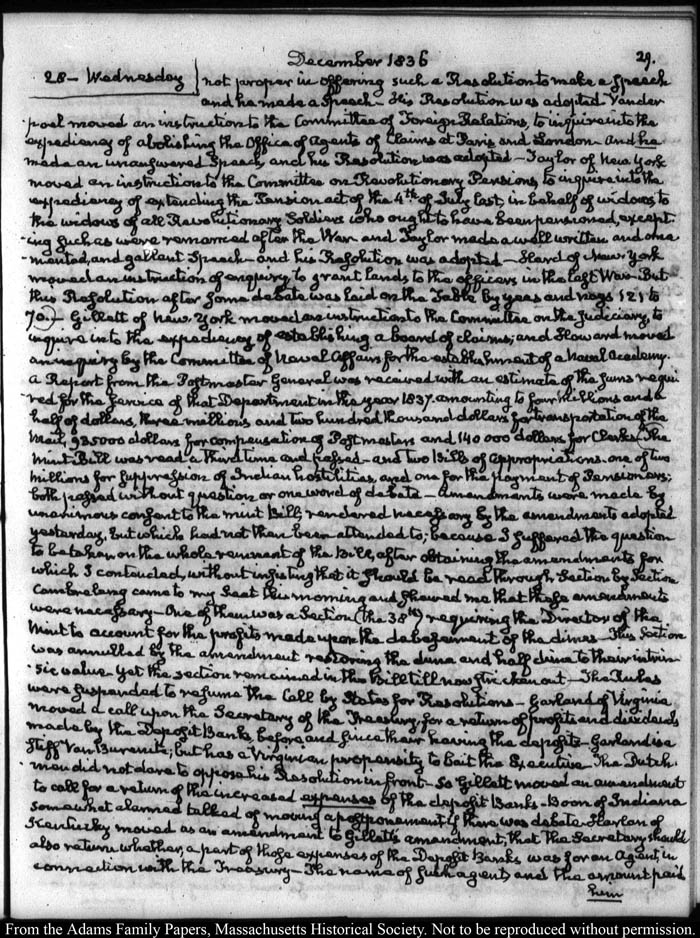 December 1836
29.
28 - Wednesday
not proper in offering such a Resolution to make a Speech
and he made a Speech - His Resolution was adopted - Vander
poel moved an instruction to the Committee of Foreign Relations, to inquire into the
expediency of abolishing the Office of Agents of Claims at Paris and London - And he
made an unanswered Speech and his Resolution was adopted - Taylor of New York
moved an instruction to the Committee on Revolutionary Pensions, to inquire into the
expediency of extending the Pension act of the 4th of July last, in behalf of widows, to
the widows of all Revolutionary Soldiers who ought to have been pensioned, except
ing such as were remarried after the War and Taylor made a well written and orna
mented, and gallant Speech - and his Resolution was adopted - Hard of New York
moved an instruction of enquiry to grant lands to the officers in the last War - But
this Resolution after some debate was laid on the Table by yeas and nays 121 to
70. - Gillett of New York moved an instruction to the Committee on the Judiciary, to
inquire into the expediency of establishing a board of claims; and Howard moved
an inquiry by the Committee of Naval Affairs for the establishment of a Naval Academy.
A Report from the Postmaster General was received with an estimate of the sums requi
red for the service of that Department in the year 1837. amounting to four millions and a
half of dollars, three millions and two hundred thousand dollars for transportation of the
Mail, 935000 dollars for compensation of Postmasters and 140 000 dollars for Clerks - The
Mint Bill was read a third time and passed - and two Bills of appropriations. one of two
millions for suppression of Indian hostilities, and one for the payment of Pensioners;
both passed without question or one word of debate - Amendments were made by
unanimous consent to the mint Bill, rendered necessary by the amendments adopted
yesterday, but which had not then been attended to; because I suffered the question
to be taken on the whole remnant of the Bill, after obtaining the amendments for
which I contended, without insisting that it should be read through Section by Section
Cambreleng came to my Seat this morning and shewed me that those amendments
were necessary - One of them was a Section (the 38th) requiring the Director of the
Mint to account for the profits made upon the debasement of the dimes - This Section
was annulled by the amendment restoring the dime and half dime to their intrin
sic value - yet the section remained in the Bill till now stricken out - The Rules
were suspended to resume the Call by States for Resolutions - Garland of Virginia
moved a call upon the Secretary of the Treasury, for a return of profits and dividends
made by the Deposit Banks, before and since their having the deposits - Garland is a
stiff Van Burenite; but has a Virginian propensity to bait the Executive - The Dutch
men did not dare to oppose his Resolution in front - So Gillett moved an amendment
to call for a return of the increased expenses of the deposit Banks - Boon of Indiana
somewhat alarmed talked of moving a postponement if there was debate - Harlan of
Kentucky moved as an amendment to Gillett's amendment, that the Secretary should
also return whether, a part of those expenses of the Deposit Banks was for an Agent, in
connection with the Treasury - The name of such agent, and the amount paid
him
From the Adams Family Papers, Massachusetts Historical Society. Not to be reproduced without permission.